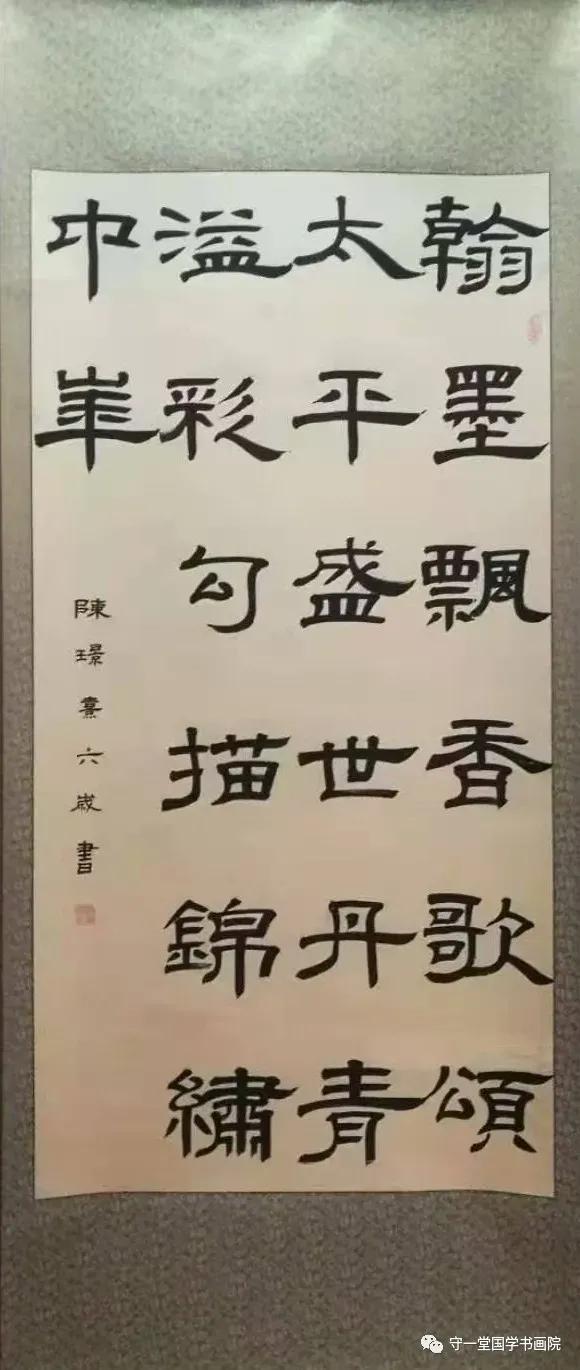 翰墨飄香歌頌
太平盛世丹青
溢彩勾描錦繡
中華
陳璟熹六歲書
守一堂国学书画院